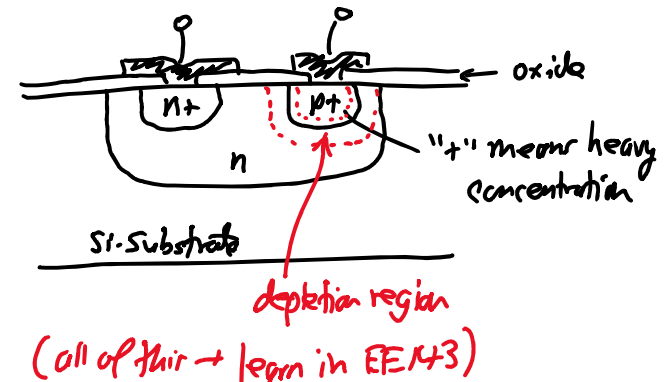 oxide
n+
p+
"+" means heavy
concentration
n
Si-substrate
depletion region
(all of this → learn in EE143)